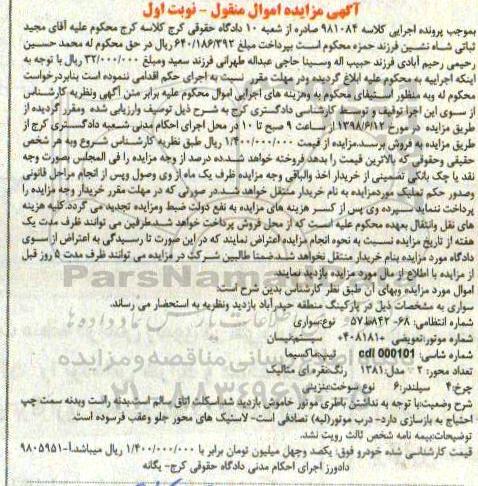 آگهی مزایده اموال منقول - نوبت اول
بموجب پرونده اجرایی کلاسه ۹۸۱۰۸۴ صادره از شعبه ۱۰ دادگاه حقوقی کرج کلاسه کرج محکوم علیه آقای مجید
ثباتی شاه نشین فرزند حمزه محکوم است بپرداخت مبلغ ۶۴۰/۱۸۶/۳۹۲ ریال در حق محکوم له محمد حسین
رحیمی رحیم آبادی فرزند حبیب اله وسینا حاجی عبداله طهرانی فرزند سعید ومبلغ ۳۲/۰۰۰/۰۰۰ ریال با توجه به
اینکه اجراییه به محکوم علیه ابلاغ گردیده ودر مهلت مقرر نسبت به اجرای حکم اقدامی ننموده است بنابردرخواست
محکوم له وبه منظور استیفای محکوم به وهزینه های اجرایی اموال محکوم علیه برابر متن آگهی ونظریه کارشناس
از سوی این اجرا توقیف و توسط کارشناسی دادگستری کرج به شرح ذیل توصیف وارزیابی شده ومقرر گردیده از
طریق مزایده در مورخ ۱۳۹۸/۶/۱۲ از ساعت ۹ صبح تا ۱۰ در محل اجرای احکام مدنی شعبه دادگستری کرج از
طریق مزایده به فروش برسد.مزایده از قیمت ۱/۴۰۰/۰۰۰/۰۰۰ ریال طبق نظریه کارشناس شروع وبه هر شخص
حقیقی وحقوقی که بالاترین قیمت را بدهد فروخته خواهد شد.ده درصد از وجه مزایده را فی المجلس بصورت وجه
نقد یا چک بانکی تضمینی از خریدار اخذ والباقی وجه مزایده ظرف یک ماه از وی وصول وپس از انجام مراحل قانونی
وصدور حکم تملیک موردمزایده به نام خریدار منتقل خواهد شد.در صورتی که در مهلت مقرر خریدار وجه مزایده را
پرداخت ننماید سپرده وی پس از کسر هزینه های مزایده به نفع دولت ضبط ومزایده تجدید می گردد.کلیه هزینه
های نقل وانتقال بعهده محکوم علیه است که از محل فروش پرداخت خواهد شد.طرفین می توانند ظرف مدت یک
هفته از تاریخ مزایده نسبت به نحوه انجام مزایده اعتراض نمایند که در این صورت تا رسیدگی به اعتراض از سوی
دادگاه مورد مزایده بنام خریدار منتقل نخواهد شد.ضمنا طالبین شرکت در مزایده می توانند ظرف مدت ۵ روز قبل
از مزایده با اطلاع از مال مورد مزایده بازدید نمایند.
اموال مورد مزایده وبهای آن طبق نظر کارشناس بدین شرح است:
سواری به مشخصات ذیل در پارکینگ منطقه حیدرآباد بازدید ونظریه به استحضار می رساند.
شماره انتظامی: ۶۸-۸۴۲ط۵۷ نوع:سواری
شماره موتور:تعویضی ۰۴۰۸۱۸۱۰ سیستم:نیسان
شماره شاسی: cdl 000101 تیپ:ماکسیما
تعداد محور: ۲ مدل: ۱۳۸۱ رنگ:نقره ای متالیک
چرخ:۴ سیلندر:۶ نوع سوخت:بنزینی
شرح وضعیت:با توجه به نداشتن باطری موتور خاموش بازدید شد.اسکلت اتاق سالم است.بدنه راست وبدنه سمت چپ
احتیاج به بازسازی دارد- درب موتور(لبه) تصادفی است- لاستیک های محور جلو وعقب فرسوده است.
توضیحات:بیمه نامه شخص ثالث رویت نشد.
قیمت کارشناسی شده خودرو فوق: یکصد وچهل میلیون تومان برابر با ۱/۴۰۰/۰۰۰/۰۰۰ ریال میباشد.آ-۹۸۰۵۹۵۱
دادورز اجرای احکام مدنی دادگاه حقوقی کرج- یگانه